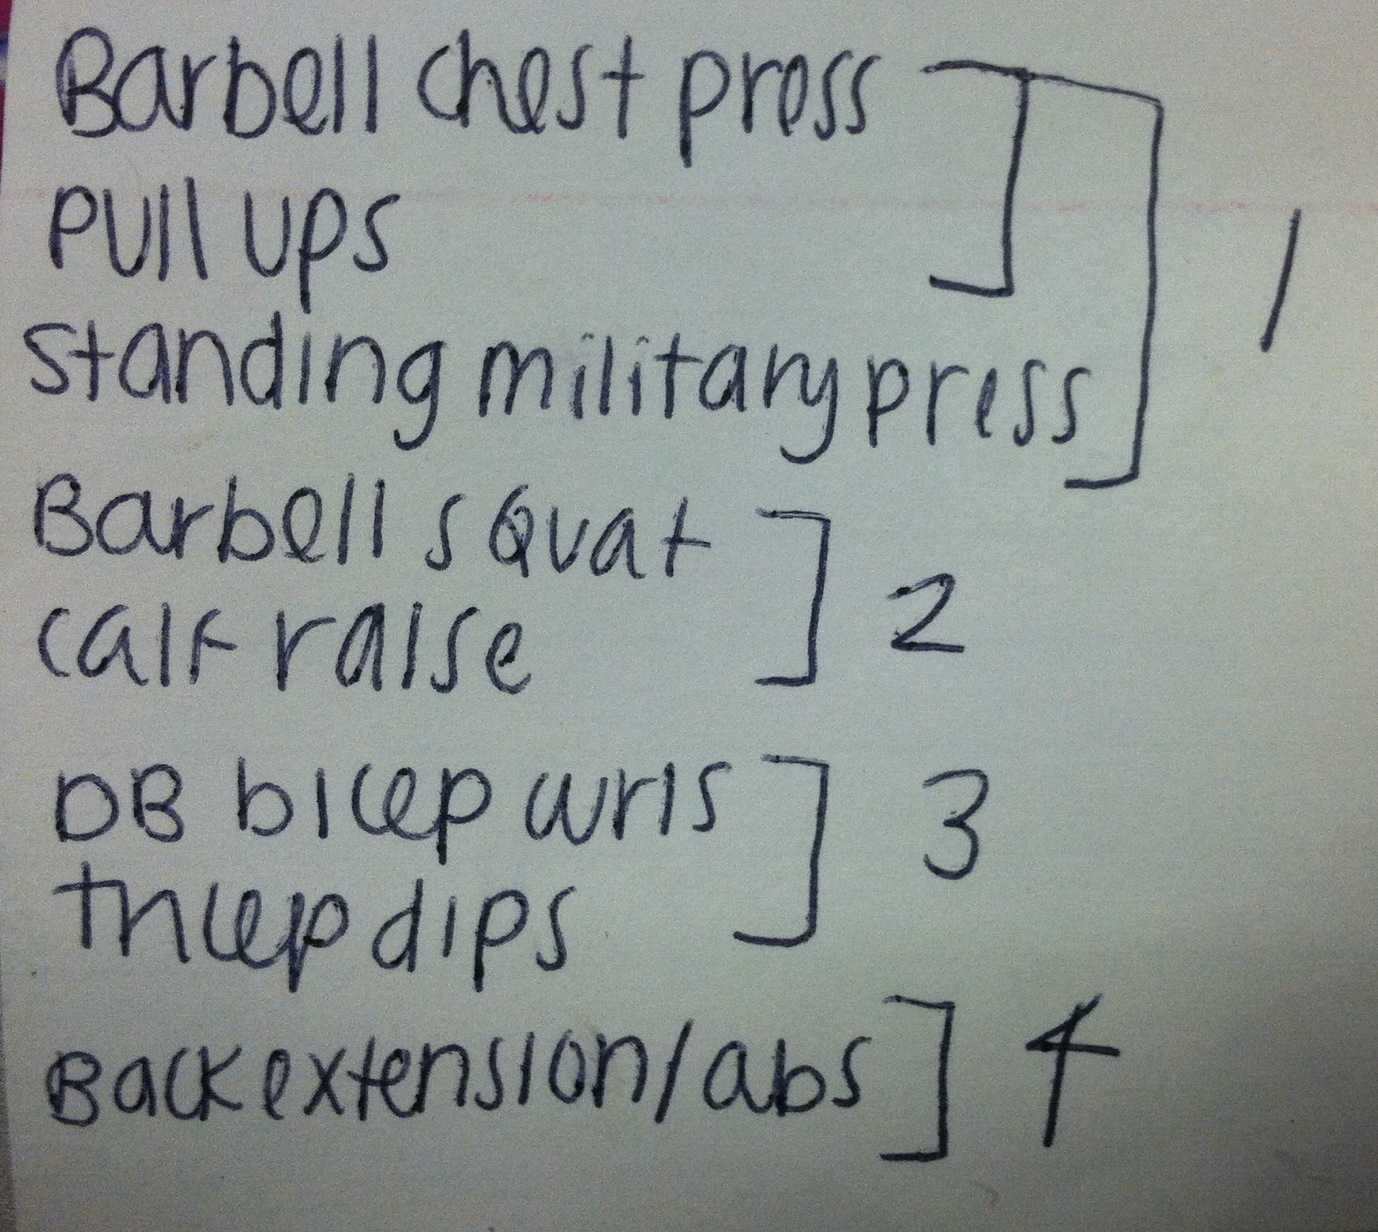 Barbell chest press
Pull ups
standing military press
1
Barbell squat
calf raise
2
DB bicep curls
tricep dips
3
Back extension/abs
4